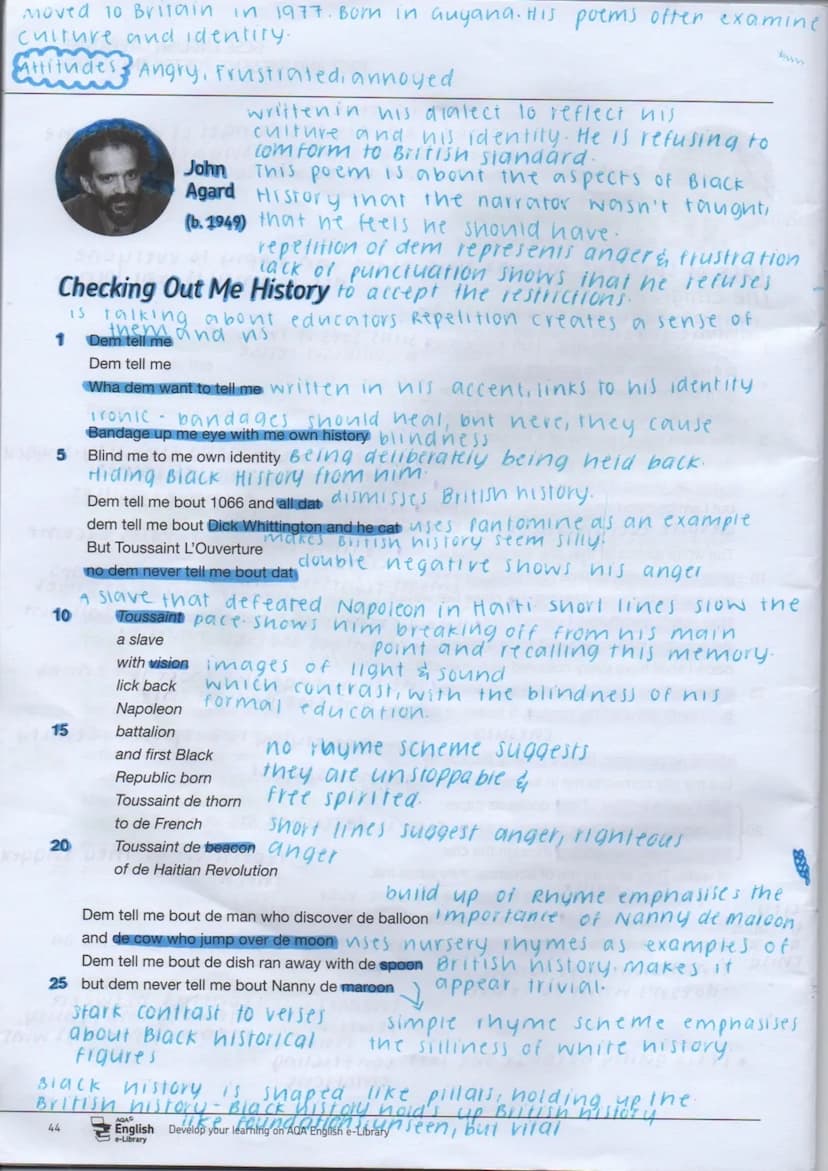 moved to Britain in 1977. Born in Guyana. His poems often examine
culture and identity.
Attitudes: Angry, Frustrated, annoyed
writtenin his dialect to reflect his
culture and his identity. He is refusing to
comform to British standard.
John
Agard
(b. 1949)
This poem is about the aspects of Black
History that the narrator wasn't taught,
that he feels he should have.
repetition of dem represents anger & frustration
lack of punctuation shows that he refuses
Checking Out Me History to accept the restrictions.
is talking about educators Repetition creates a sense of
them and us
1 Dem tell me
Dem tell me
Wha dem want to tell me written in his accent, links to his identity
ironic - bandages should heal, but here, they cause
Bandage up me eye with me own history blindness
5 Blind me to me own identity Being deliberately being held back.
Hiding Black History from him.
Dem tell me bout 1066 and all dat dismisses British history.
dem tell me bout Dick Whittington and he cat uses Pantomine as an example
makes British history seem silly.
But Toussaint L'Ouverture
no dem never tell me bout dat double negative shows his anger
A slave that defeated Napoleon in Haiti short lines slow the
10 Toussaint pace. shows him breaking off from his main
a slave point and recalling this memory.
with vision images of light & sound
lick back which contrast, with the blindness of his
Napoleon formal education.
15 battalion
and first Black no rhyme scheme suggests
Republic born they are unstoppable &
Toussaint de thorn free spirited.
to de French short lines suggest anger, righteous
20 Toussaint de beacon anger
of de Haitian Revolution
build up of Rhyme emphasises the
Dem tell me bout de man who discover de balloon importance of Nanny de maroon
and de cow who jump over de moon uses nursery rhymes as examples of
Dem tell me bout de dish ran away with de spoon British history. makes it
25 but dem never tell me bout Nanny de maroon appear trivial.
stark contrast to verses
about Black historical
figures
simple rhyme scheme emphasises
the silliness of white history
Black history is shaped like pillars, holding up the
British history - Black history holds up British history
like foundations, unseen, but vital
44 AQA English e-Library Develop your learning on AQA English e-Library